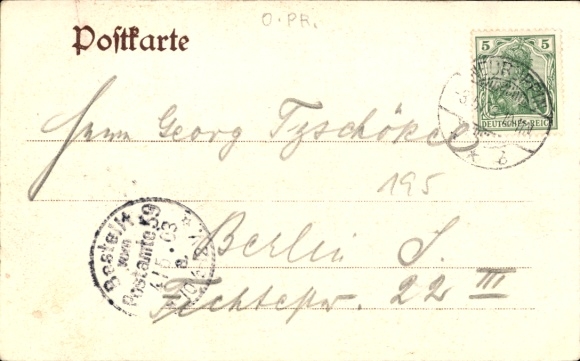 O. PR.
Postkarte
5 5
DEUTSCHES REICH
Herrn Georg Tzschökel
195
Bestellt
vom
Postamte 59
4/5. 03
Berlin S.
22 III